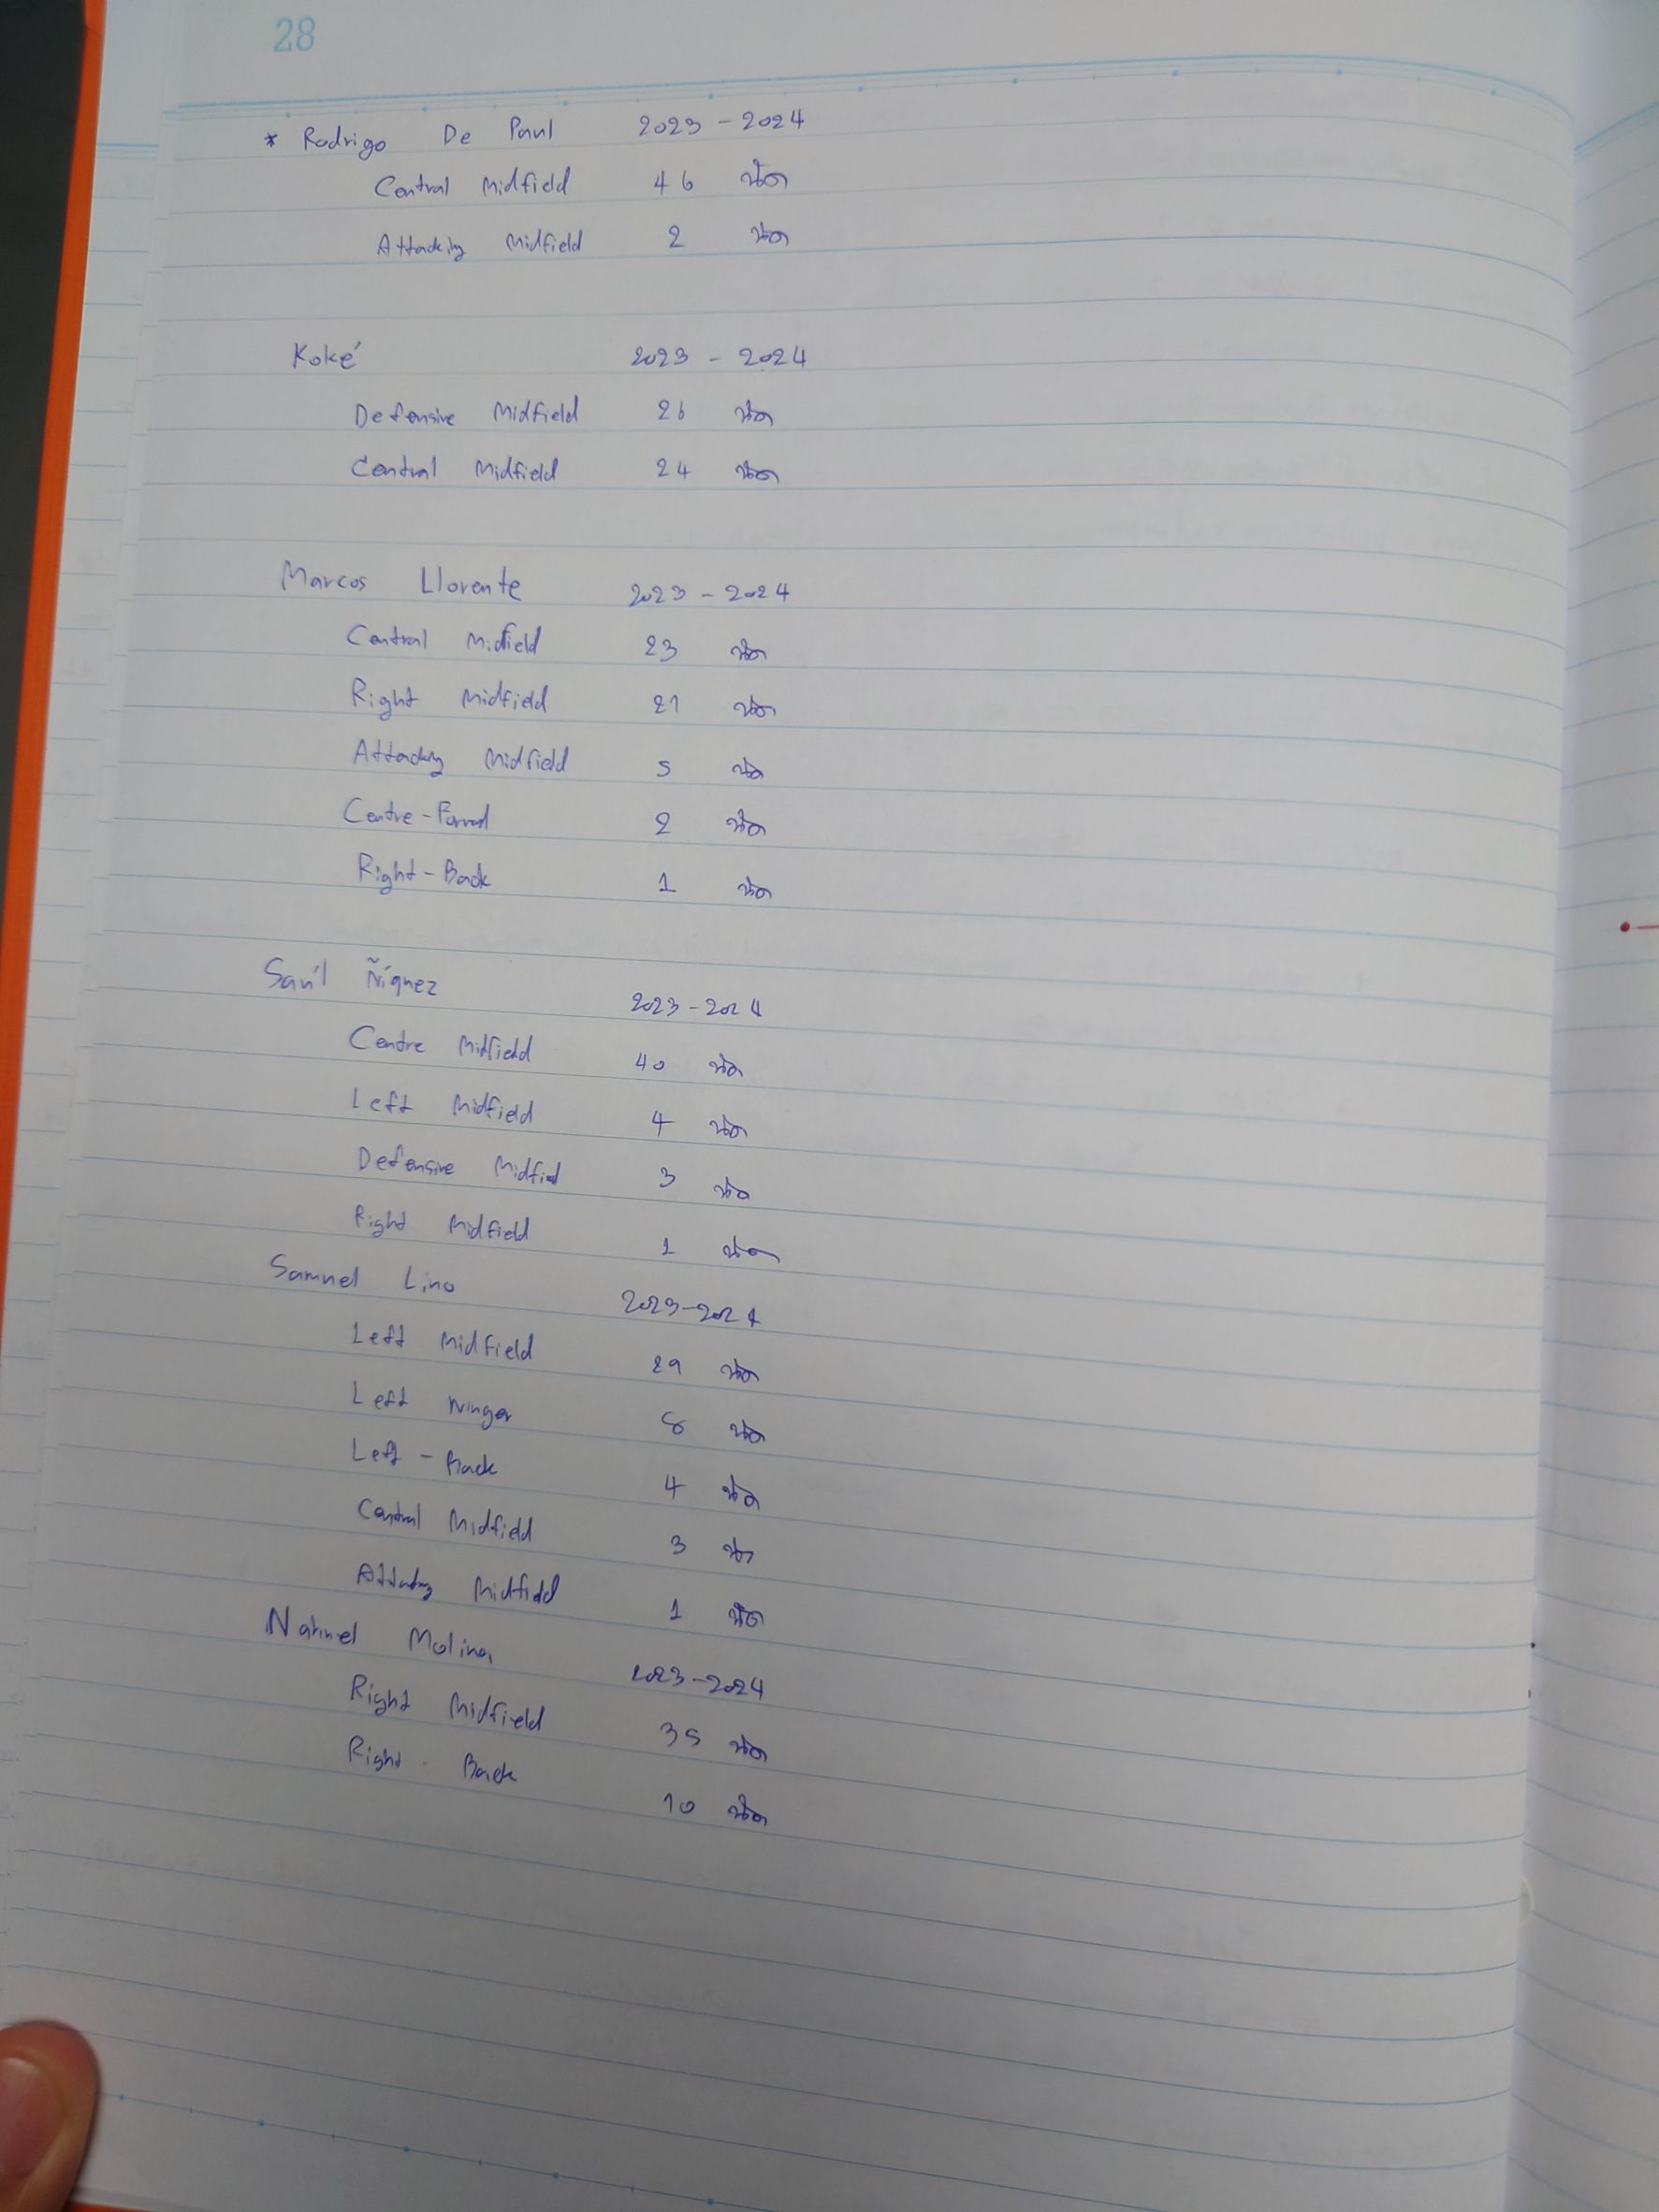 28
* Rodrigo De Paul 2023 - 2024
Central Midfield 46 นัด
Attacking Midfield 2 นัด
Koké 2023 - 2024
Defensive Midfield 26 นัด
Central Midfield 24 นัด
Marcos Llorente 2023 - 2024
Central Midfield 23 นัด
Right Midfield 21 นัด
Attacking Midfield 5 นัด
Centre-Forward 2 นัด
Right-Back 1 นัด
Saúl Ñíguez 2023-2024
Centre Midfield 40 นัด
Left Midfield 4 นัด
Defensive Midfield 3 นัด
Right Midfield 1 นัด
Samuel Lino 2023-2024
Left Midfield 29 นัด
Left Winger 8 นัด
Left - Back 4 นัด
Central Midfield 3 นัด
Attacking Midfield 1 นัด
Nahuel Molina 2023-2024
Right Midfield 35 นัด
Right - Back 10 นัด